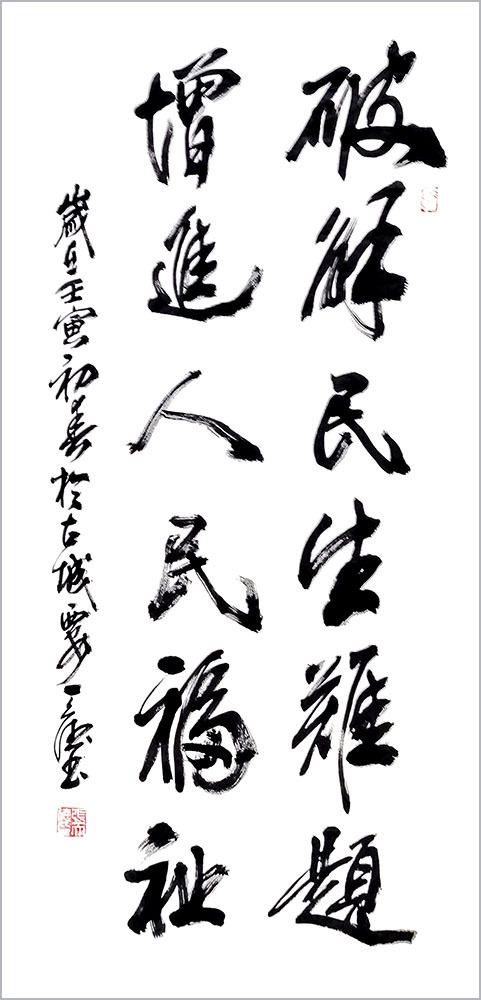 破解民生難題
增進人民福祉
歲在壬寅初春於古城西安